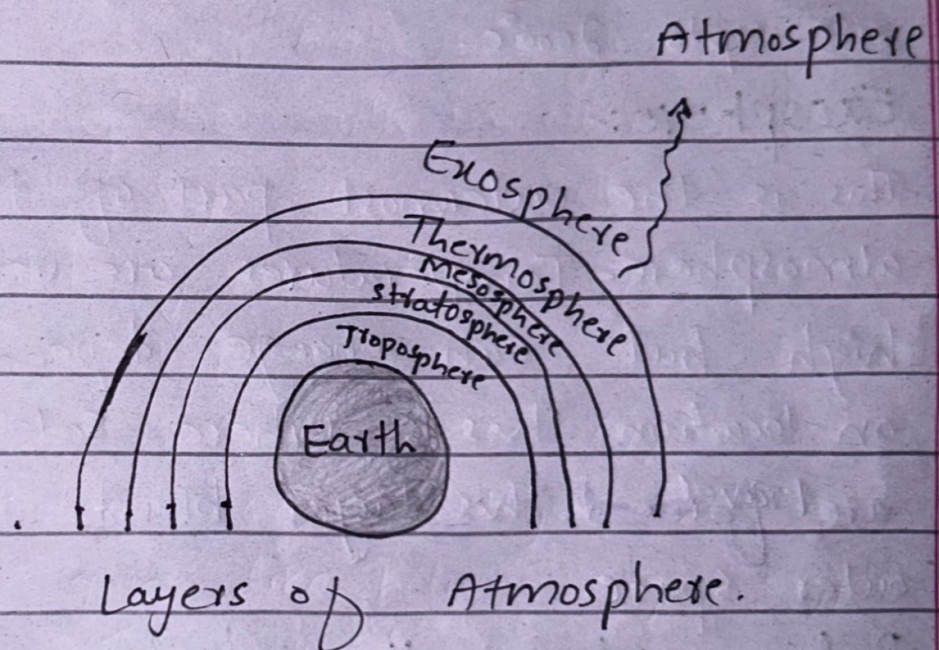 Atmosphere
Exosphere
Thermosphere
Mesosphere
stratosphere
Troposphere
Earth
Layers of Atmosphere.